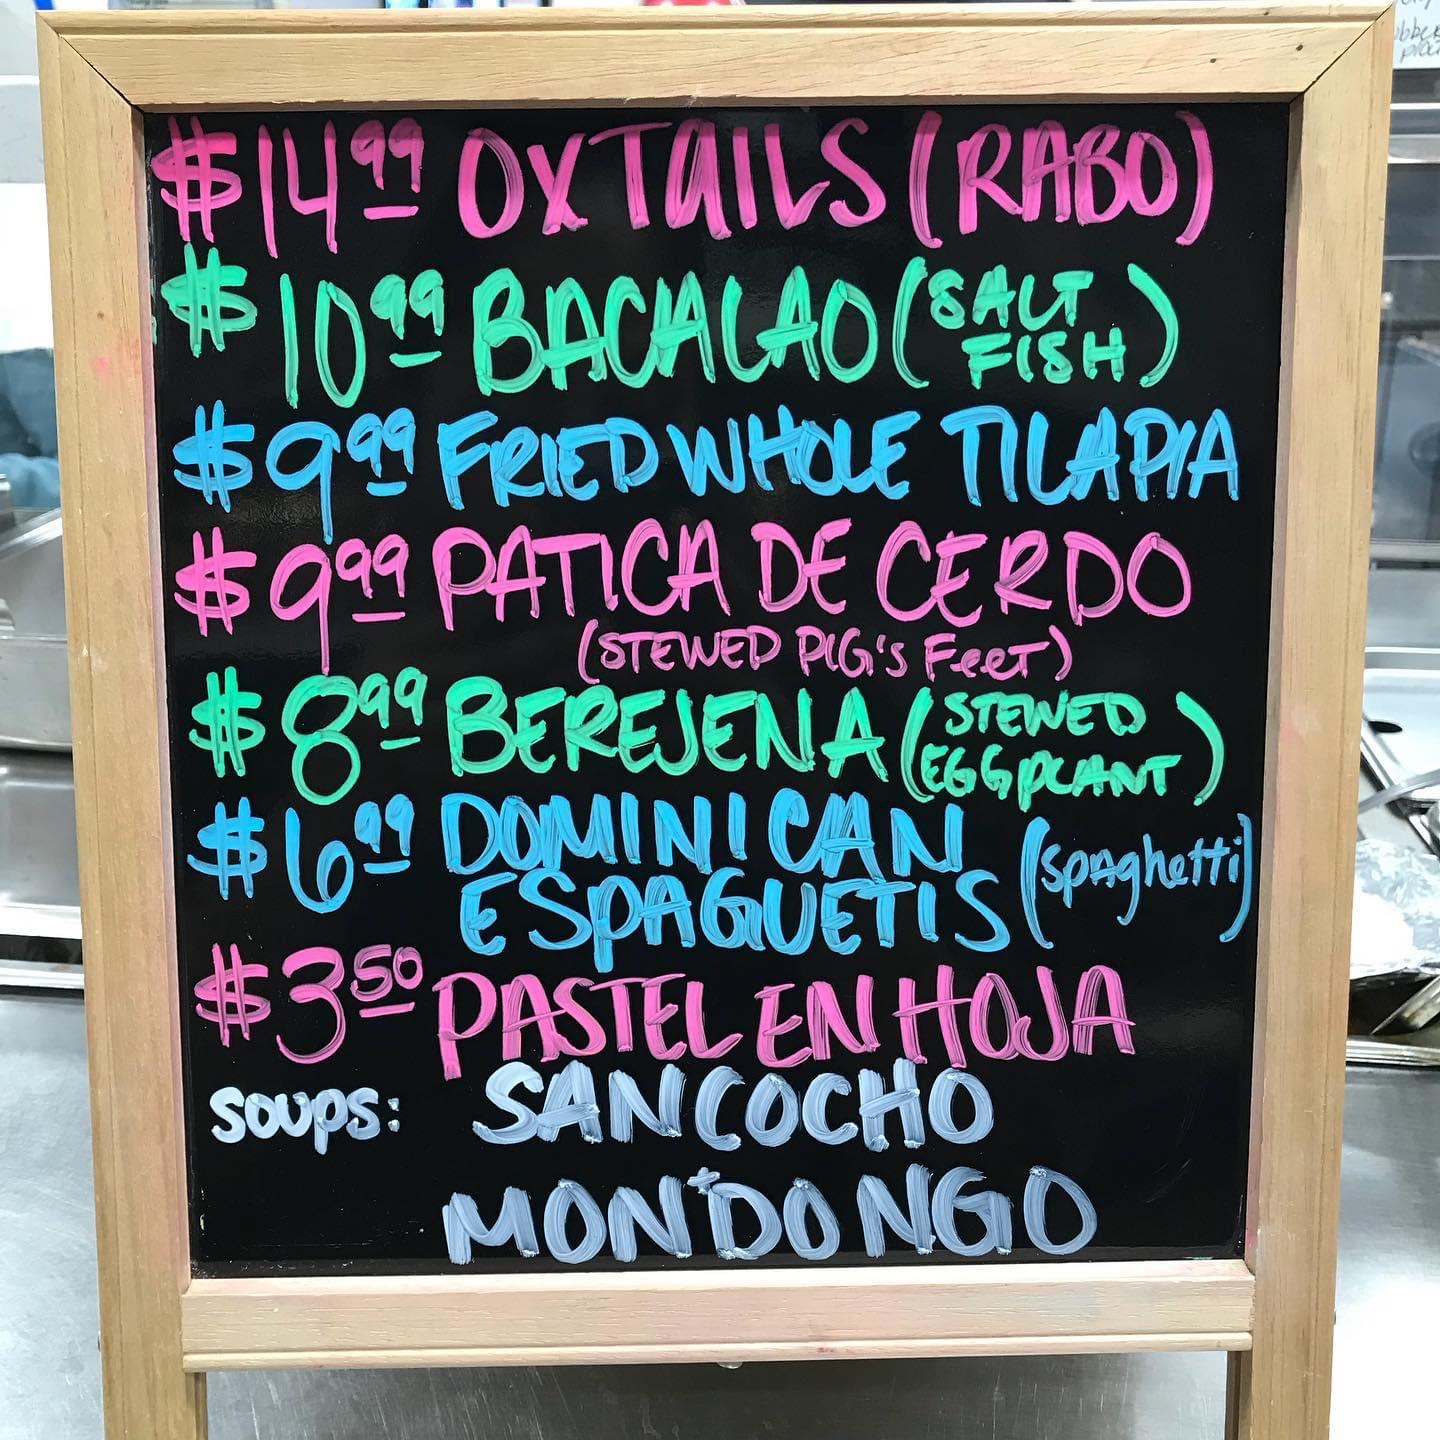 $14.99 OXTAILS (RABO)
$10.99 BACALAO (SALT
FISH)
$9.99 FRIED WHOLE TILAPIA
$9.99 PATICA DE CERDO
(STEWED PIG'S FeeT)
$8.99 BEREJENA (STEWED
EGGPLANT)
$6.99 DOMINICAN
ESPAGUETIS (spaghetti)
$3.50 PASTEL EN HOJA
SOUPS: SANCOCHO
MONDONGO